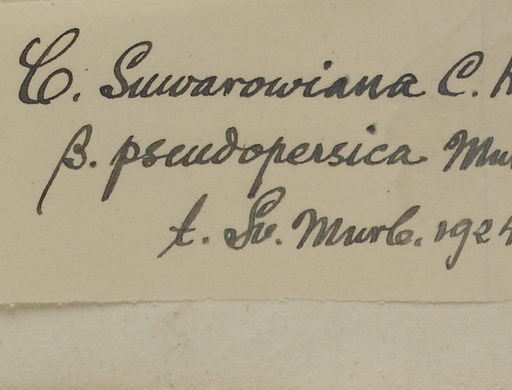 C. Suwarowiana C. K
β. pseudopersica Mur
t. Sv. Murb. 1924